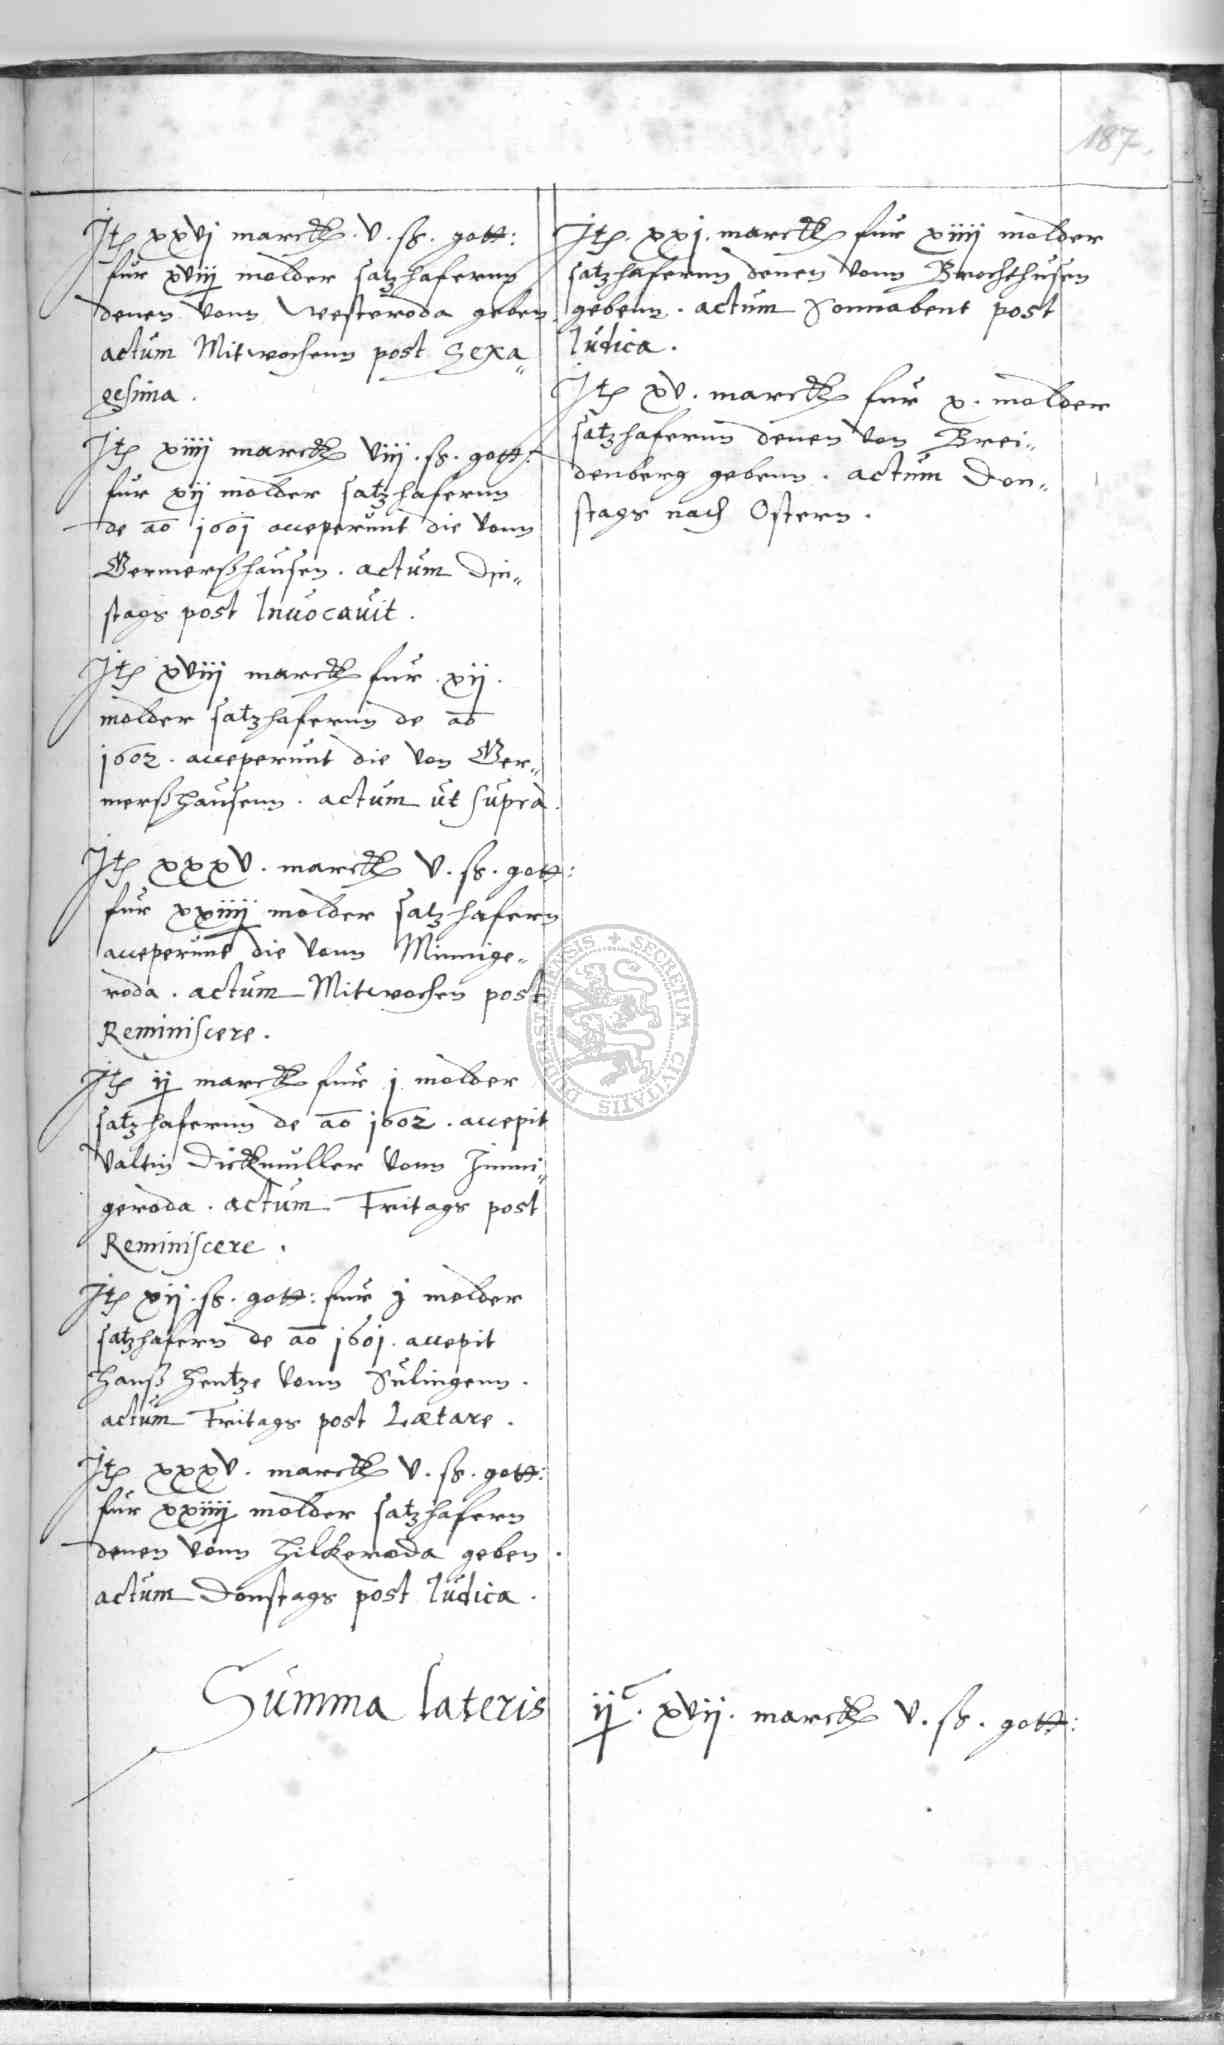 187.
Itē xxvj marck. v. ß. gott:
fur xviij molder satzhafernn
denen vonn Westeroda geben
actum Mitwochenn post Sexa„
gesima.
Itē xiiij marck viij. ß. gott:
fur xij molder satzhafernn
de ao 1601 acceperunt die vonn
Germerßhausen. actum Din„
stags post Invocavit.
Itē xviij marck fur. xij.
molder satzhafernn de ao
1602. acceperunt die von Ger„
merßhausenn. actum ut supra.
Itē xxxv. marck v. ß. gott:
fur xxiiij molder satzhafern
acceperunt die vonn Minnige„
roda. actum Mitwochen post
Reminiscere.
Itē ij marck fur j molder
satzhafernn de ao 1602. accepit
Valtin Dickmuller vonn Immi„
geroda. actum Fritags post
Reminiscere.
Itē xij. ß. gott: fur j molder
satzhafern de ao 1601. accepit
Hanß Hentze vonn Sulingenn.
actum Fritags post Lætare.
Itē xxxv. marck v. ß. gott:
fur xxiiij molder satzhafern
denen vonn Hilkeroda geben.
actum Donstags post Iudica.
Itē. xxj. marck fur xiiij molder
satzhafernn denen vonn Brochthusen
gebenn. actum Sonnabent post
Iudica.
Itē xv. marck fur x. molder
satzhafernn denen von Brei„
denberg gebenn. actum Don„
stags nach Ostern.
Summa lateris ijc. xvij. marck v. ß. gott:
SECRETUM CIVITATIS DUDERSTADENSIS